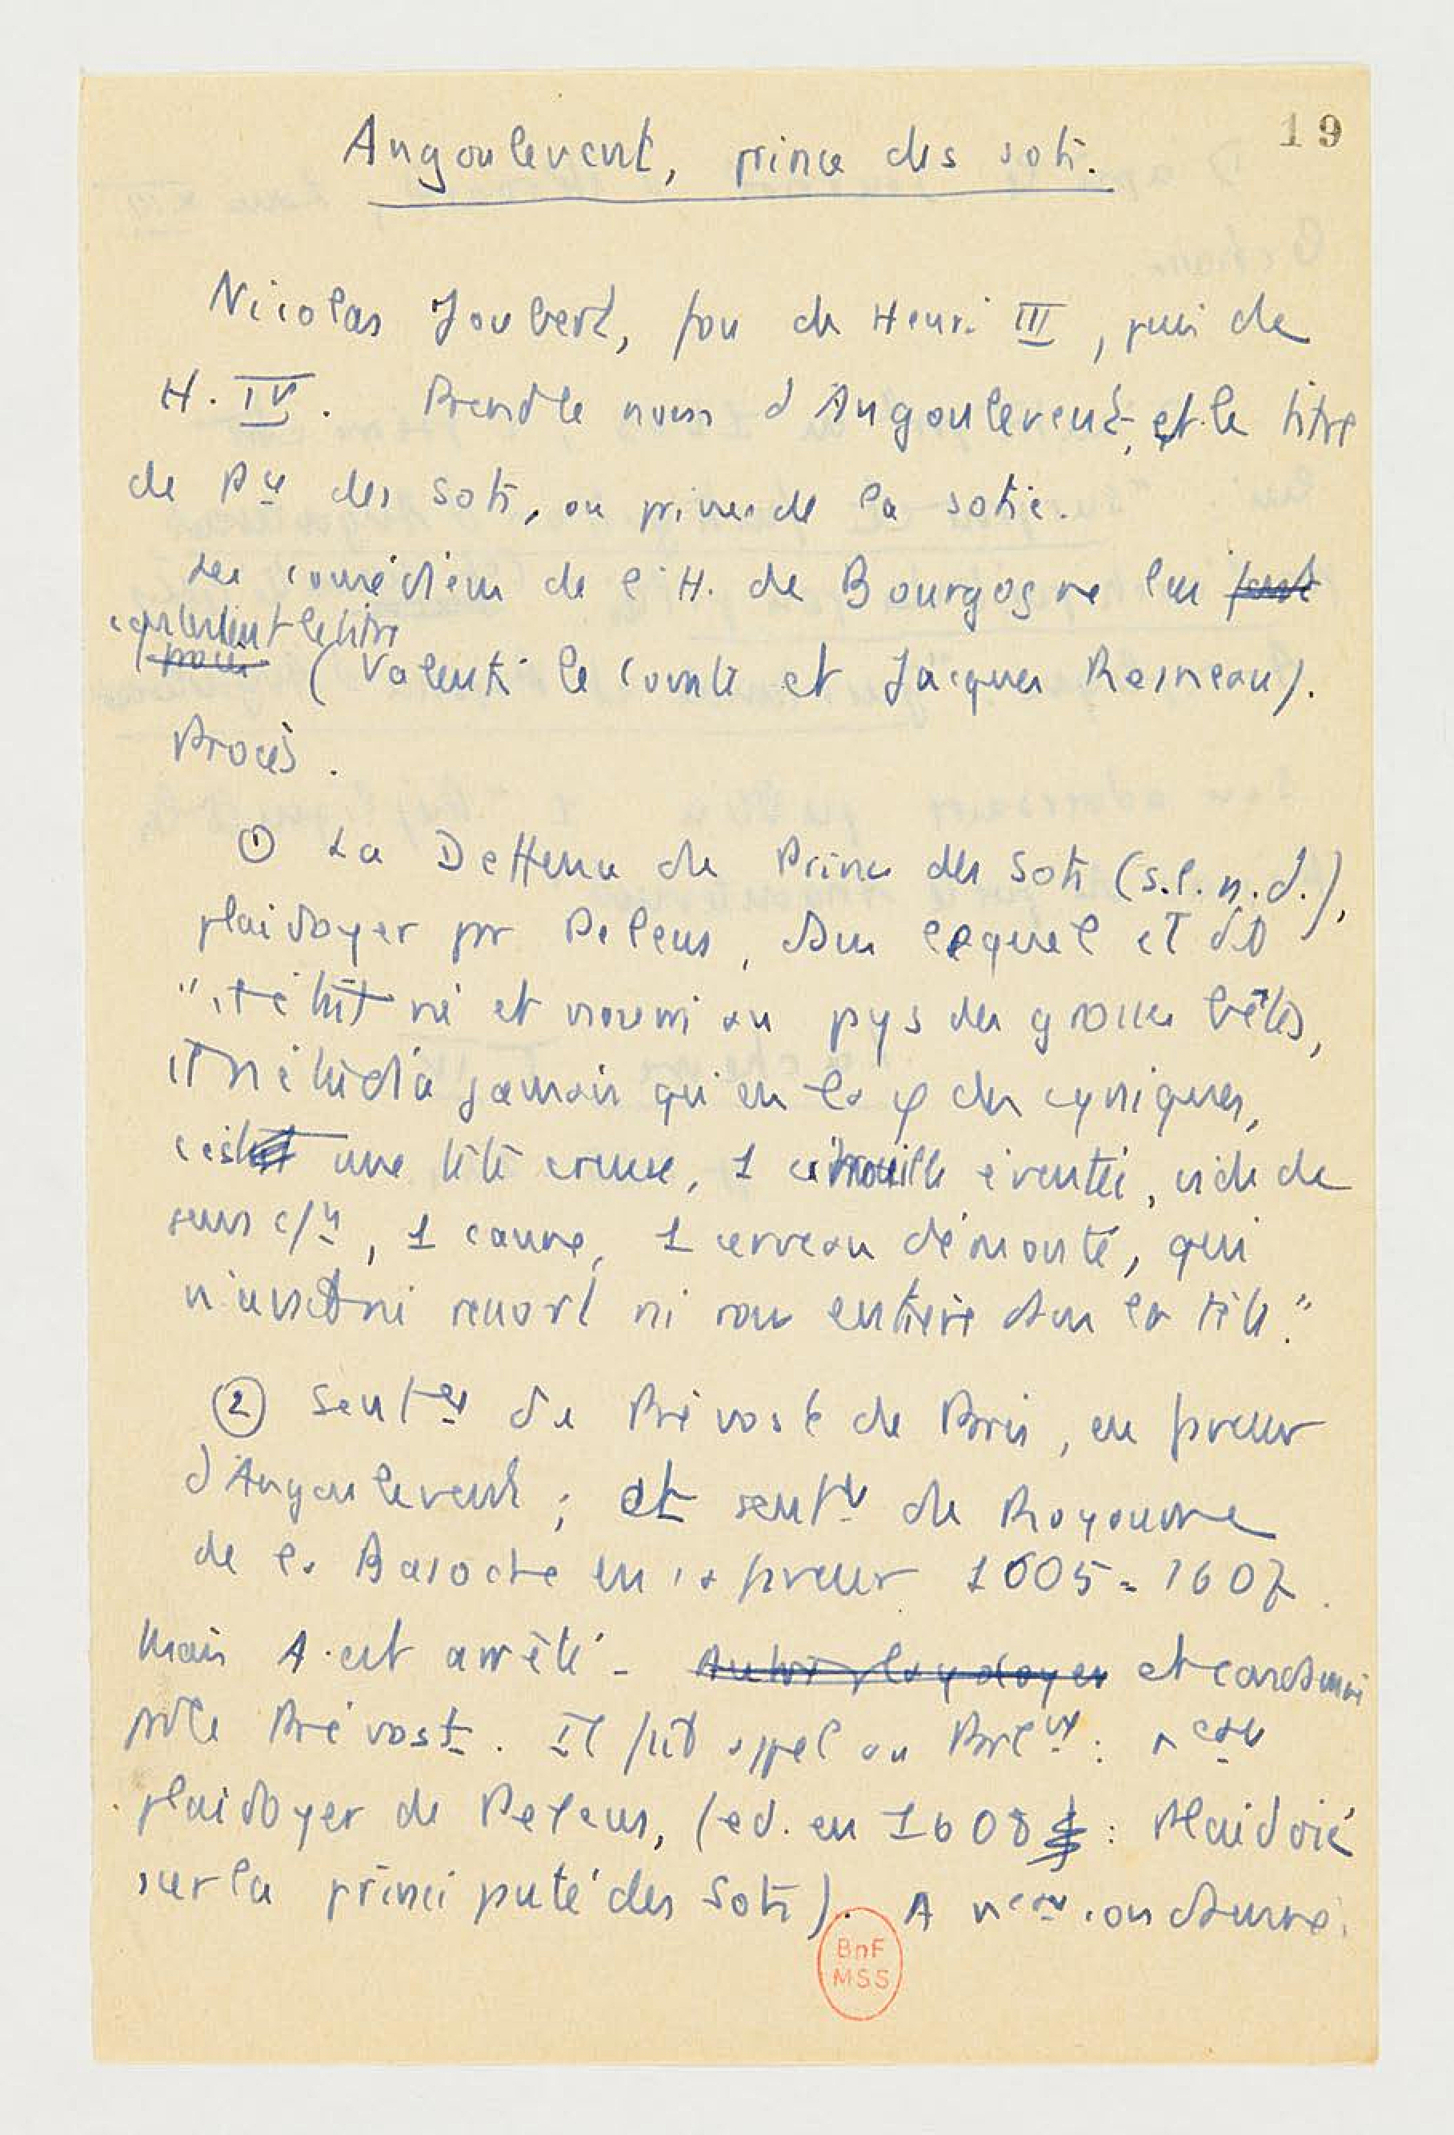 19
Angoulevent, prince des sots.
Nicolas Joubert, fou de Henri III, puis de
H. IV. Prend le nom d'Angoulevent, et le titre
de Pce des sots, ou prince de la sotie.
Les comédiens de l'H. de Bourgogne lui font
contestent le titre
procès (Valenti le Comte et Jacques Resneau).
Procès.
① La Deffense du Prince des Sots (s.l.n.d.),
plaidoyer pr Peleus, dans lequel il dit
"il était né et nourri au pays des grosses bêtes,
il n'étudia jamais qu'en la φ des cyniques,
c'est une tête creuse, 1 citrouille éventée, vide de
sens c/n, 1 canne, 1 cerveau démonté, qui
n'avait ni ressort ni roue entière dans la tête."
② Sentce du Prévost de Paris, en faveur
d'Angoulevent ; et sentce du Royaume
de la Basoche en sa faveur 1605-1607.
Mais A. est arrêté - et condamné
p le Prévost. Il fait appel au Parlt :
plaidoyer de Peleus, (ed. en 1608 : Plaidoié
sur la principauté des Sots). A condamné.
BnF
MSS